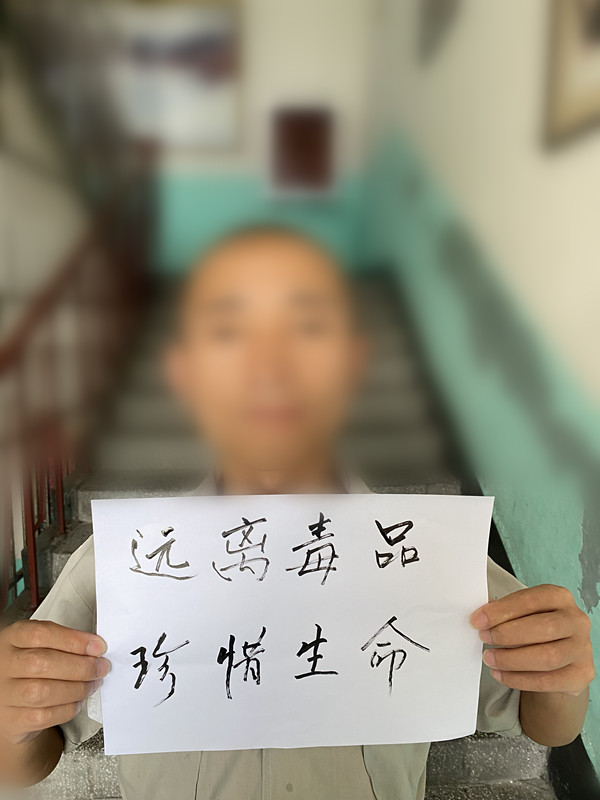 远离毒品
珍惜生命